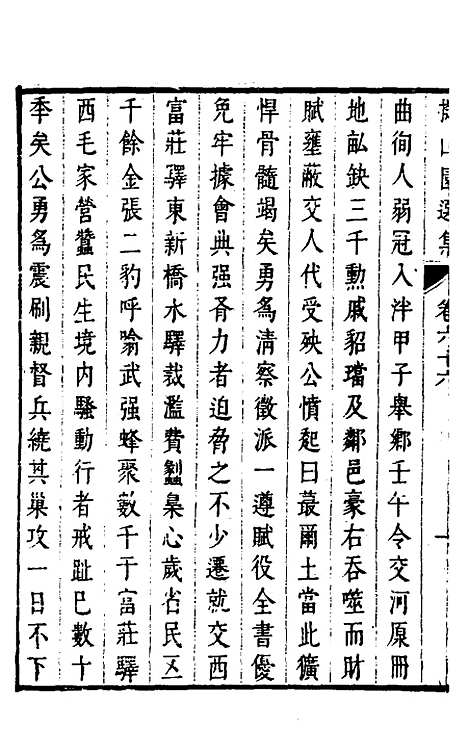 擬山園選集 卷六十六
曲徇人弱冠入泮甲子舉鄉壬午令交河原冊
地畝缺三千勳戚貂璫及鄰邑豪右吞噬而財
賦壅蔽交人代受殃公憤起曰蕞爾土當此獷
悍骨髓竭矣勇為清察徵派一遵賦役全書優
免牢據會典强脊力者迫脅之不少遷就交西
富莊驛東新橋水驛裁濫費蠲臬心歲省民五
千餘金張二豹呼喻武强蜂聚數千于富莊驛
西毛家營蠶民生境內騷動行者戒趾巳數十
季矣公勇為震刷親督兵繞其巢攻一日不下